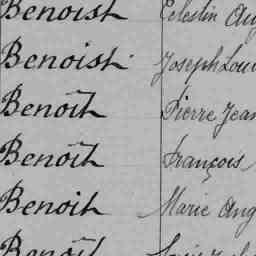 Benoist Célestin Aug
Benoist Joseph Loui
Benoît Pierre Jean
Benoît François
Benoit Marie Ang
Benoît